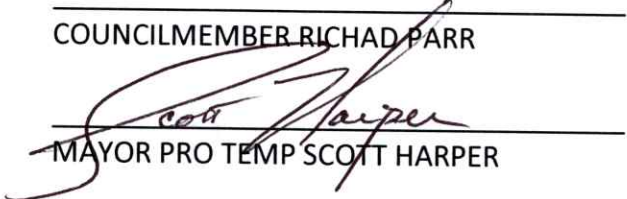 COUNCILMEMBER RICHAD PARR
Scott Harper
MAYOR PRO TEMP SCOTT HARPER